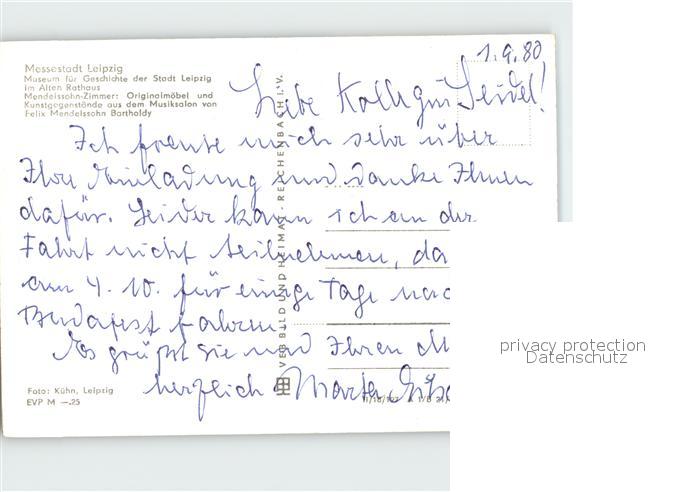 1.9.80
Messestadt Leipzig
Museum für Geschichte der Stadt Leipzig
im Alten Rathaus
Mendelssohn-Zimmer: Originalmöbel und
Kunstgegenstände aus dem Musiksalon von
Felix Mendelssohn Bartholdy
Liebe Kollegin Seidel!
Ich freute mich sehr über
Ihre Einladung und danke Ihnen
dafür. Leider kann ich an der
Fahrt nicht teilnehmen, da
am 4. 10. für einige Tage nac
Budapest fahren.
Es grüßt Sie und Ihren M
herzlich Marta
VEB BILD UND HEIMAT · REICHENBACH I. V.
Foto: Kühn, Leipzig
EVP M —.25
privacy protection
Datenschutz